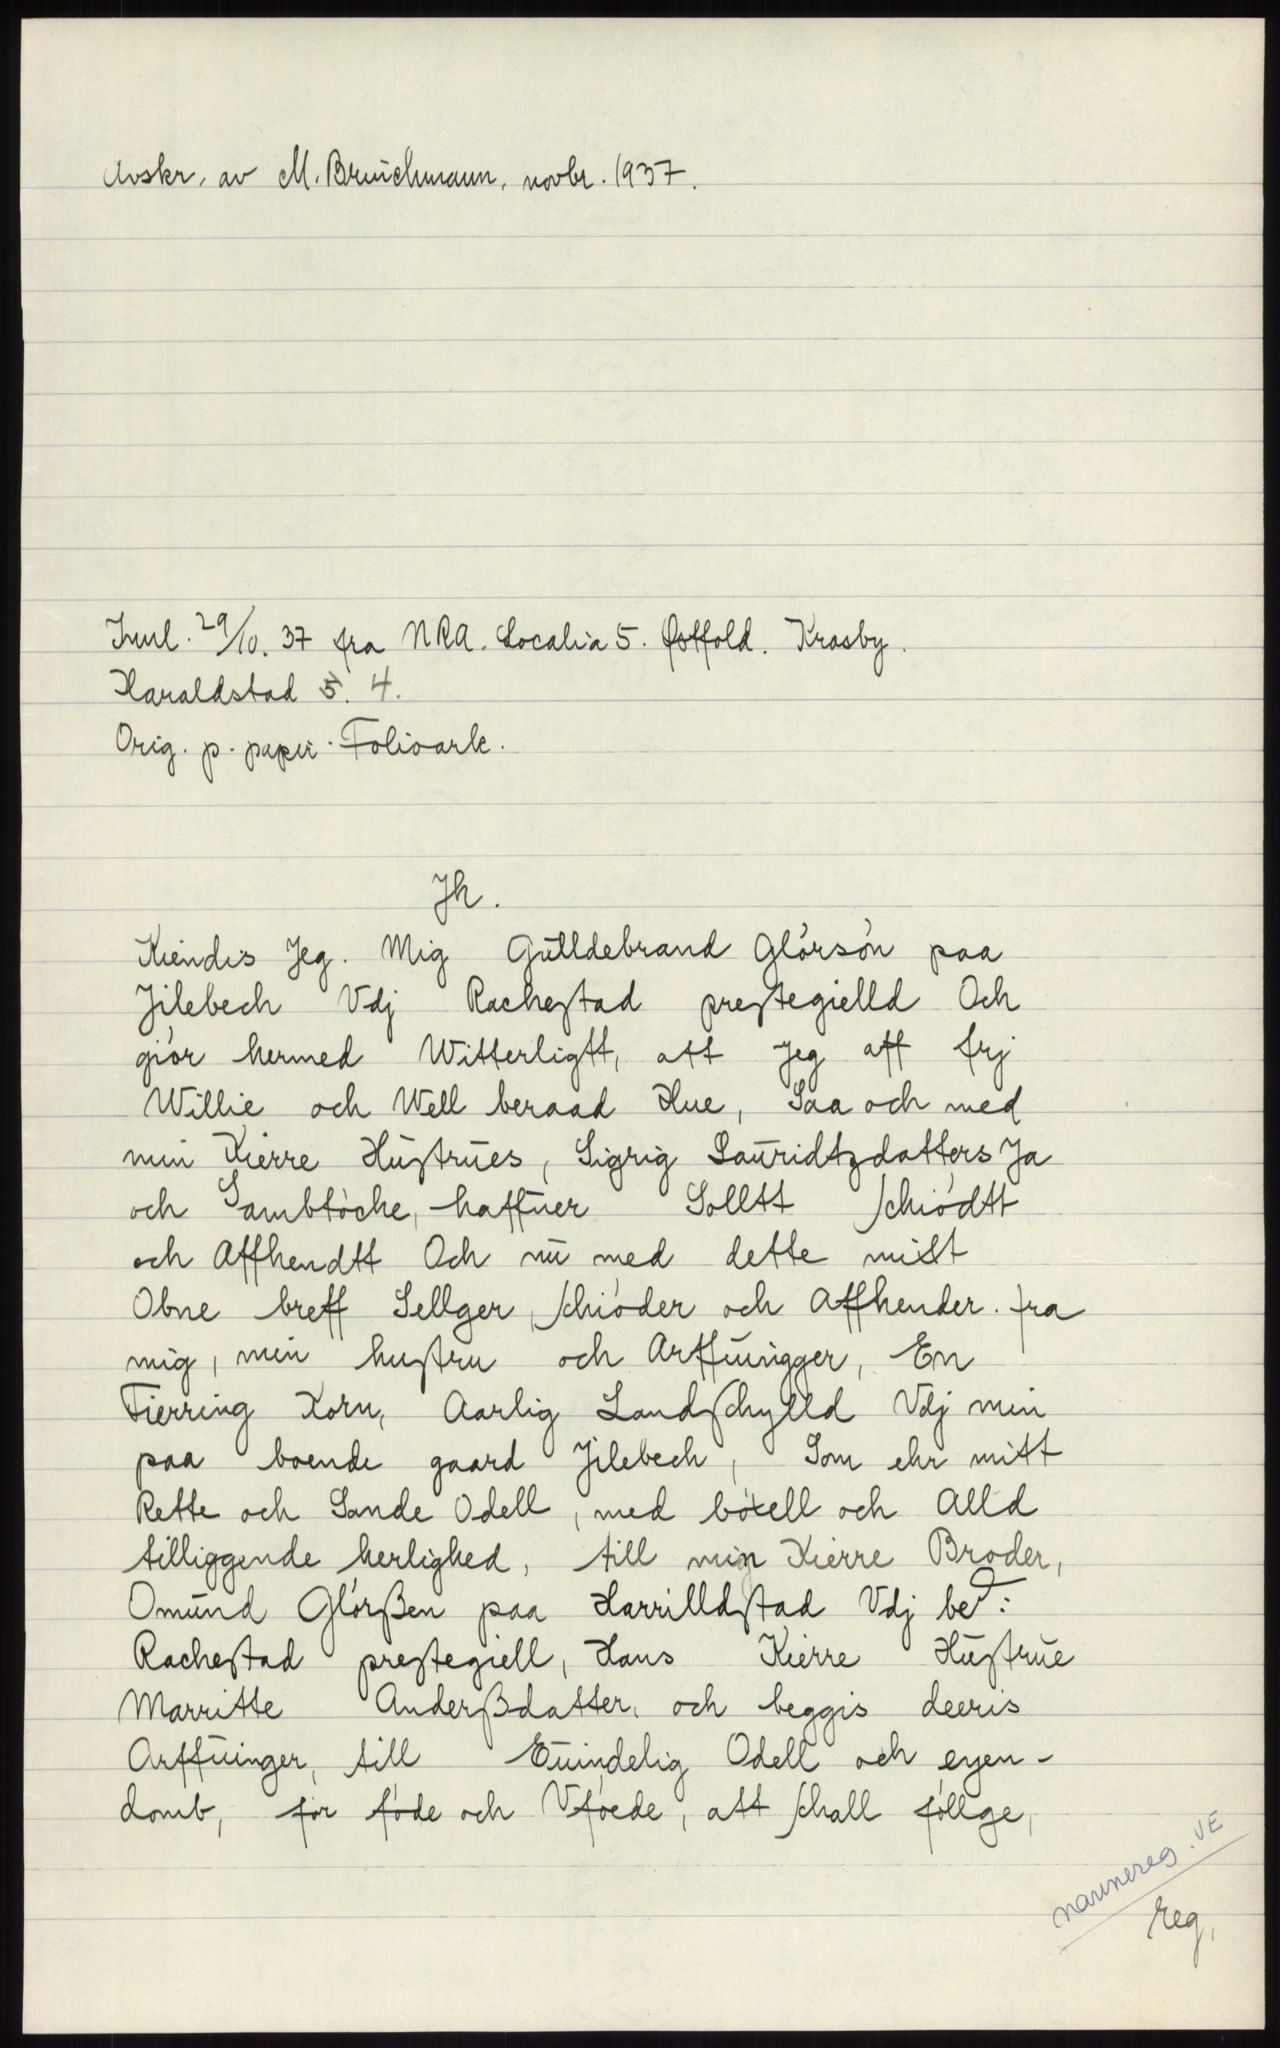 Avskr. av M. Bruichmann, novbr. 1937.
Innl. 29/10. 37 fra NRA. Localia 5. Østfold. Krosby.
Haraldstad 5. 4.
Orig. p. papir. Folioark.
Jh.
Kiendis Jeg. Mig Gulldebrand Glórsón paa
Jilebech Vdj Rachestad prestegielld Och
giór hermed Witterligtt, att Jeg aff frj
Willie och Well beraad Hue, Saa och med
min Kierre Hustrues, Sigrig Lauridtzdatters Ja
och Sambtóche, haffuer Solltt schiódtt
och Affhendtt Och nu med dette mitt
Obne breff Sellger, schióder och Affhender. fra
mig, min hustru och Arffuingger, En
Fierring Korn, Aarlig Landschylld Vdj min
paa boende gaard Jilebech, Som ehr mitt
Rette och Sande Odell, med bóxell och Alld
tilliggende herlighed, till min Kierre Broder,
Omund Glórßen paa Harrilldstad Vdj bed:
Rachestad prestegiell, Hans Kierre Hustrue
Marritte Anderßdatter, och beggis deeris
Arffuinger, till Euindelig Odell och eyen-
domb, for fóde och Vfóede, att schall fóllge,
navnereg. VE
reg.